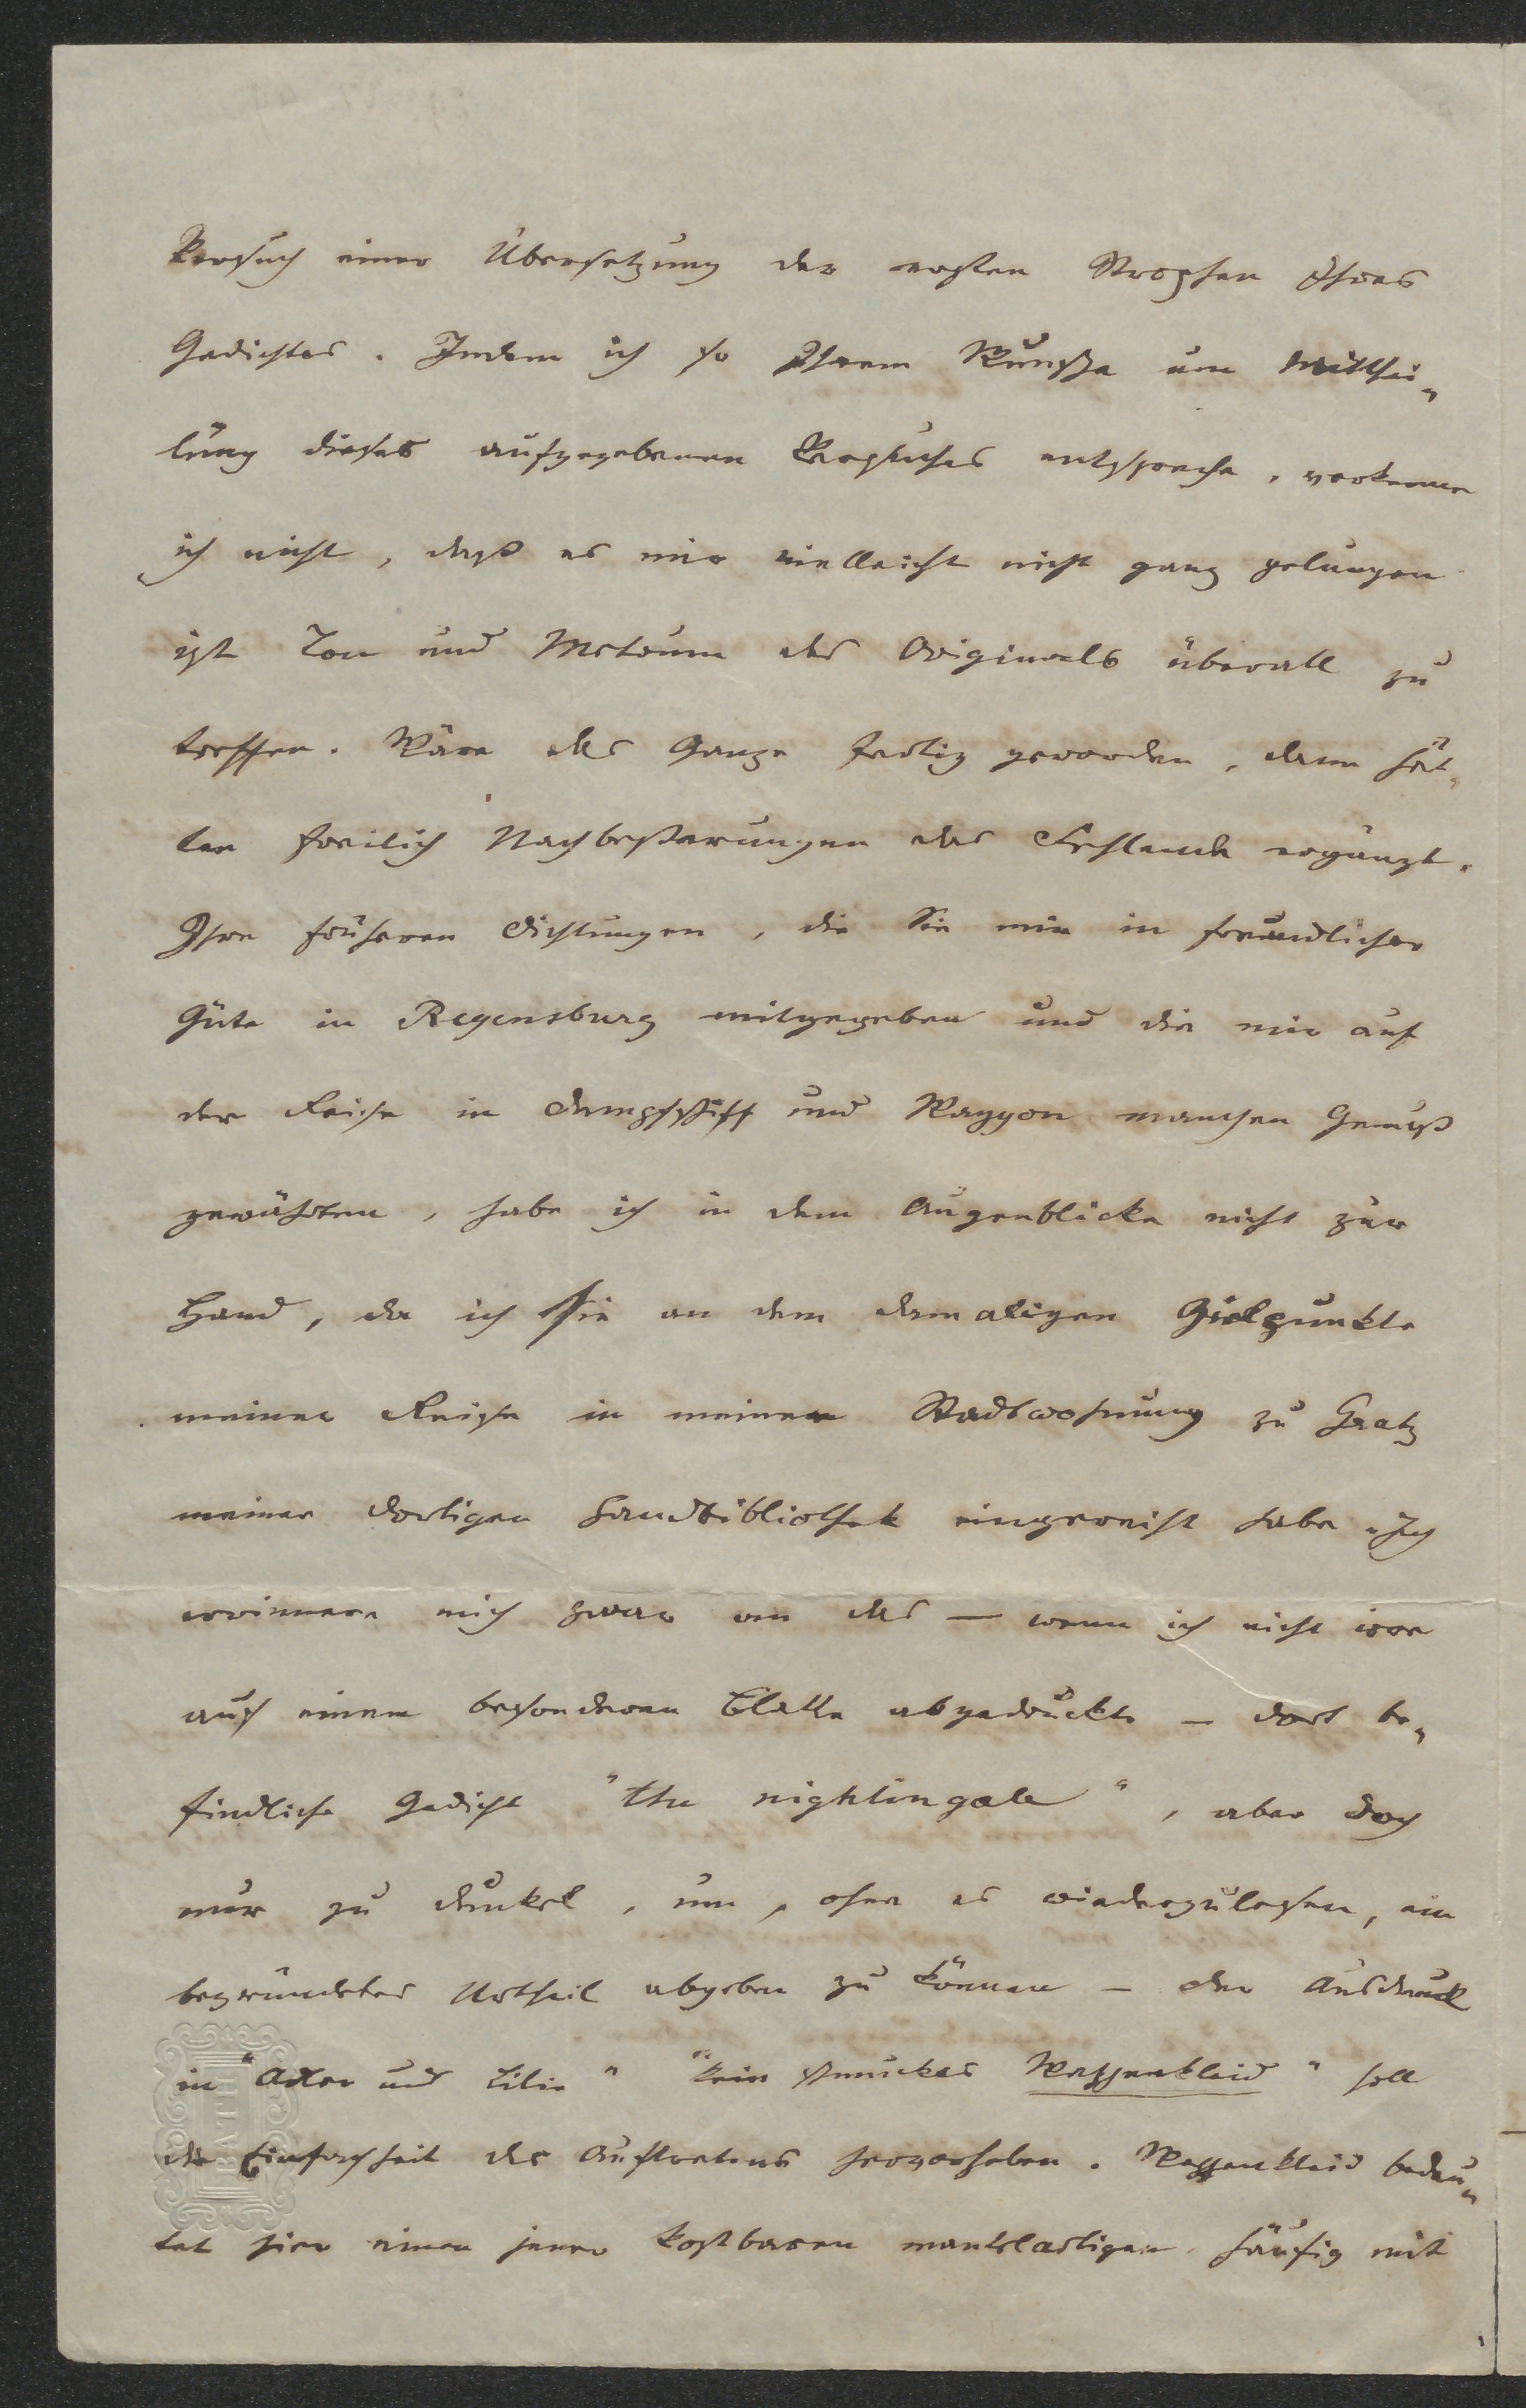 Versuch einer Übersetzung der ersten Strophen Ihres
Gedichtes. Indem ich so Ihrem Wunsche um Mitthei„
lung dieses aufgegebenen Versuches entspreche, verkenne
ich nicht, daß es mir vielleicht nicht ganz gelungen
ist Ton und Metrum des Originals überall zu
treffen. Wäre das Ganze fertig geworden, dann hät„
ten freilich Nachbesserungen das Fehlende ergänzt.
Ihre früheren Dichtungen, die Sie mir in freundlicher
Güte in Regensburg mitgegeben und die mir auf
der Reise in Dampfschiff und Waggon manchen Genuß
gewährten, habe ich in dem Augenblicke nicht zur
Hand, da ich Sie an dem damaligen Zielpunkte
meiner Reise in meiner Stadtwohnung zu Gratz
meiner dortigen Handbibliothek eingereiht habe. Ich
erinnere mich zwar an das — wenn ich nicht irre
auf einem besonderen Blatte abgedruckte — dort be„
findliche Gedicht "the nightingale", aber doch
nur zu dunkel, um, ohne es wiederzulesen, ein
begründetes Urtheil abgeben zu können — Der Ausdruck
in "Adler und Lilie" "kein schmuckes Wappenkleid" soll
die Einfachheit des Auftretens hervorheben. Wappenkleid bedeu„
tet hier einen jener kostbaren mantelartigen häufig mit